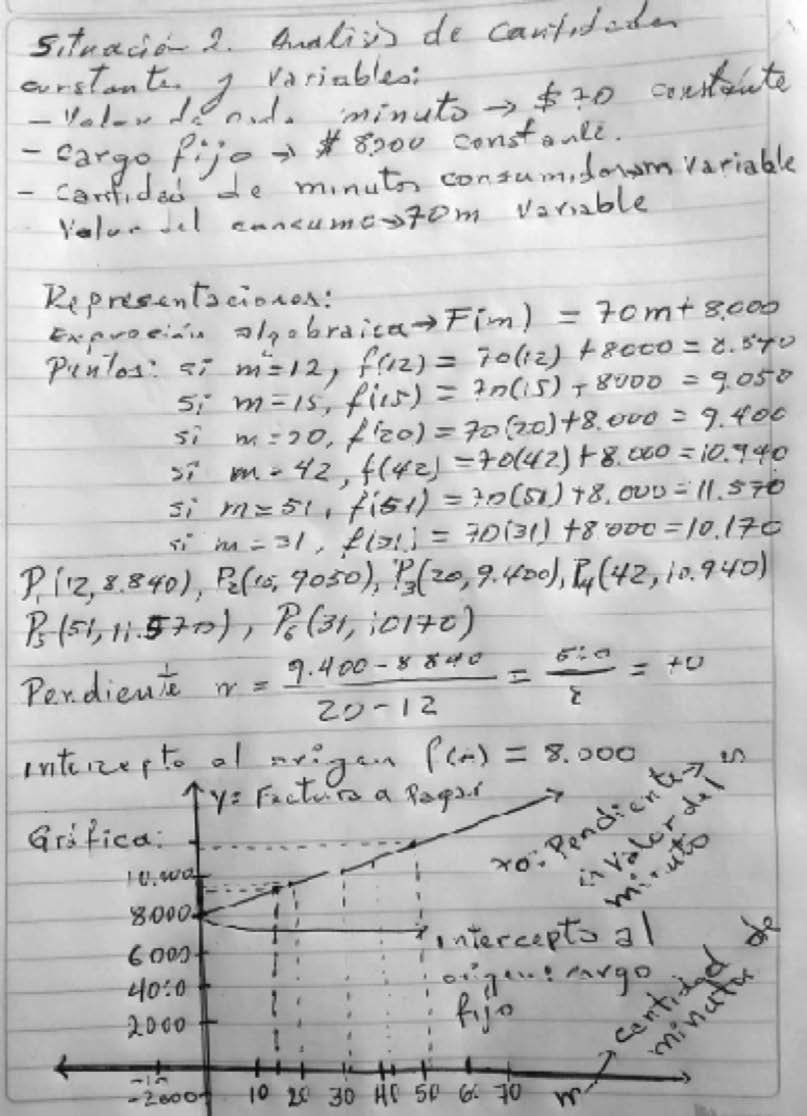 Situación 2. Analisis de Cantidades
constantes y Variables:
- Valor de cada minuto → $ 70 constante
- Cargo fijo → $ 8000 constante.
- Cantidad de minutos consumidos → m Variable
- Valor del consumo → 70m Variable
Representaciones:
Expresión algebraica → F(m) = 70m + 8.000
Puntos: si m = 12, f(12) = 70(12) + 8000 = 8.840
si m = 15, f(15) = 70(15) + 8000 = 9.050
si m = 20, f(20) = 70(20) + 8.000 = 9.400
si m = 42, f(42) = 70(42) + 8.000 = 10.940
si m = 51, f(51) = 70(51) + 8.000 = 11.570
si m = 31, f(31) = 70(31) + 8.000 = 10.170
P1(12, 8.840), P2(15, 9050), P3(20, 9.400), P4(42, 10.940)
P5(51, 11.570), P6(31, 10170)
Pendiente = 9.400 - 8840 / 20 - 12 = 560 / 8 = 70
intercepto al origen = 8.000
Y = Factura a Pagar
Gráfica:
70: Pendiente →
Valor del
minuto
10.000
8000
6000
4000
2000
intercepto al
origen: cargo
fijo
-10 10 20 30 40 50 60 70
-2000
m → cantidad de
minutos